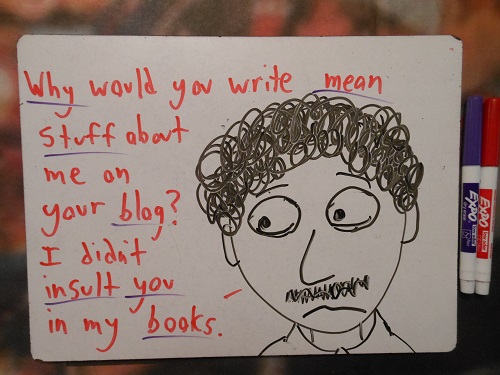 Why would you write mean
stuff about
me on
your blog?
I didn't
insult you
in my books.
EXPO
EXPO